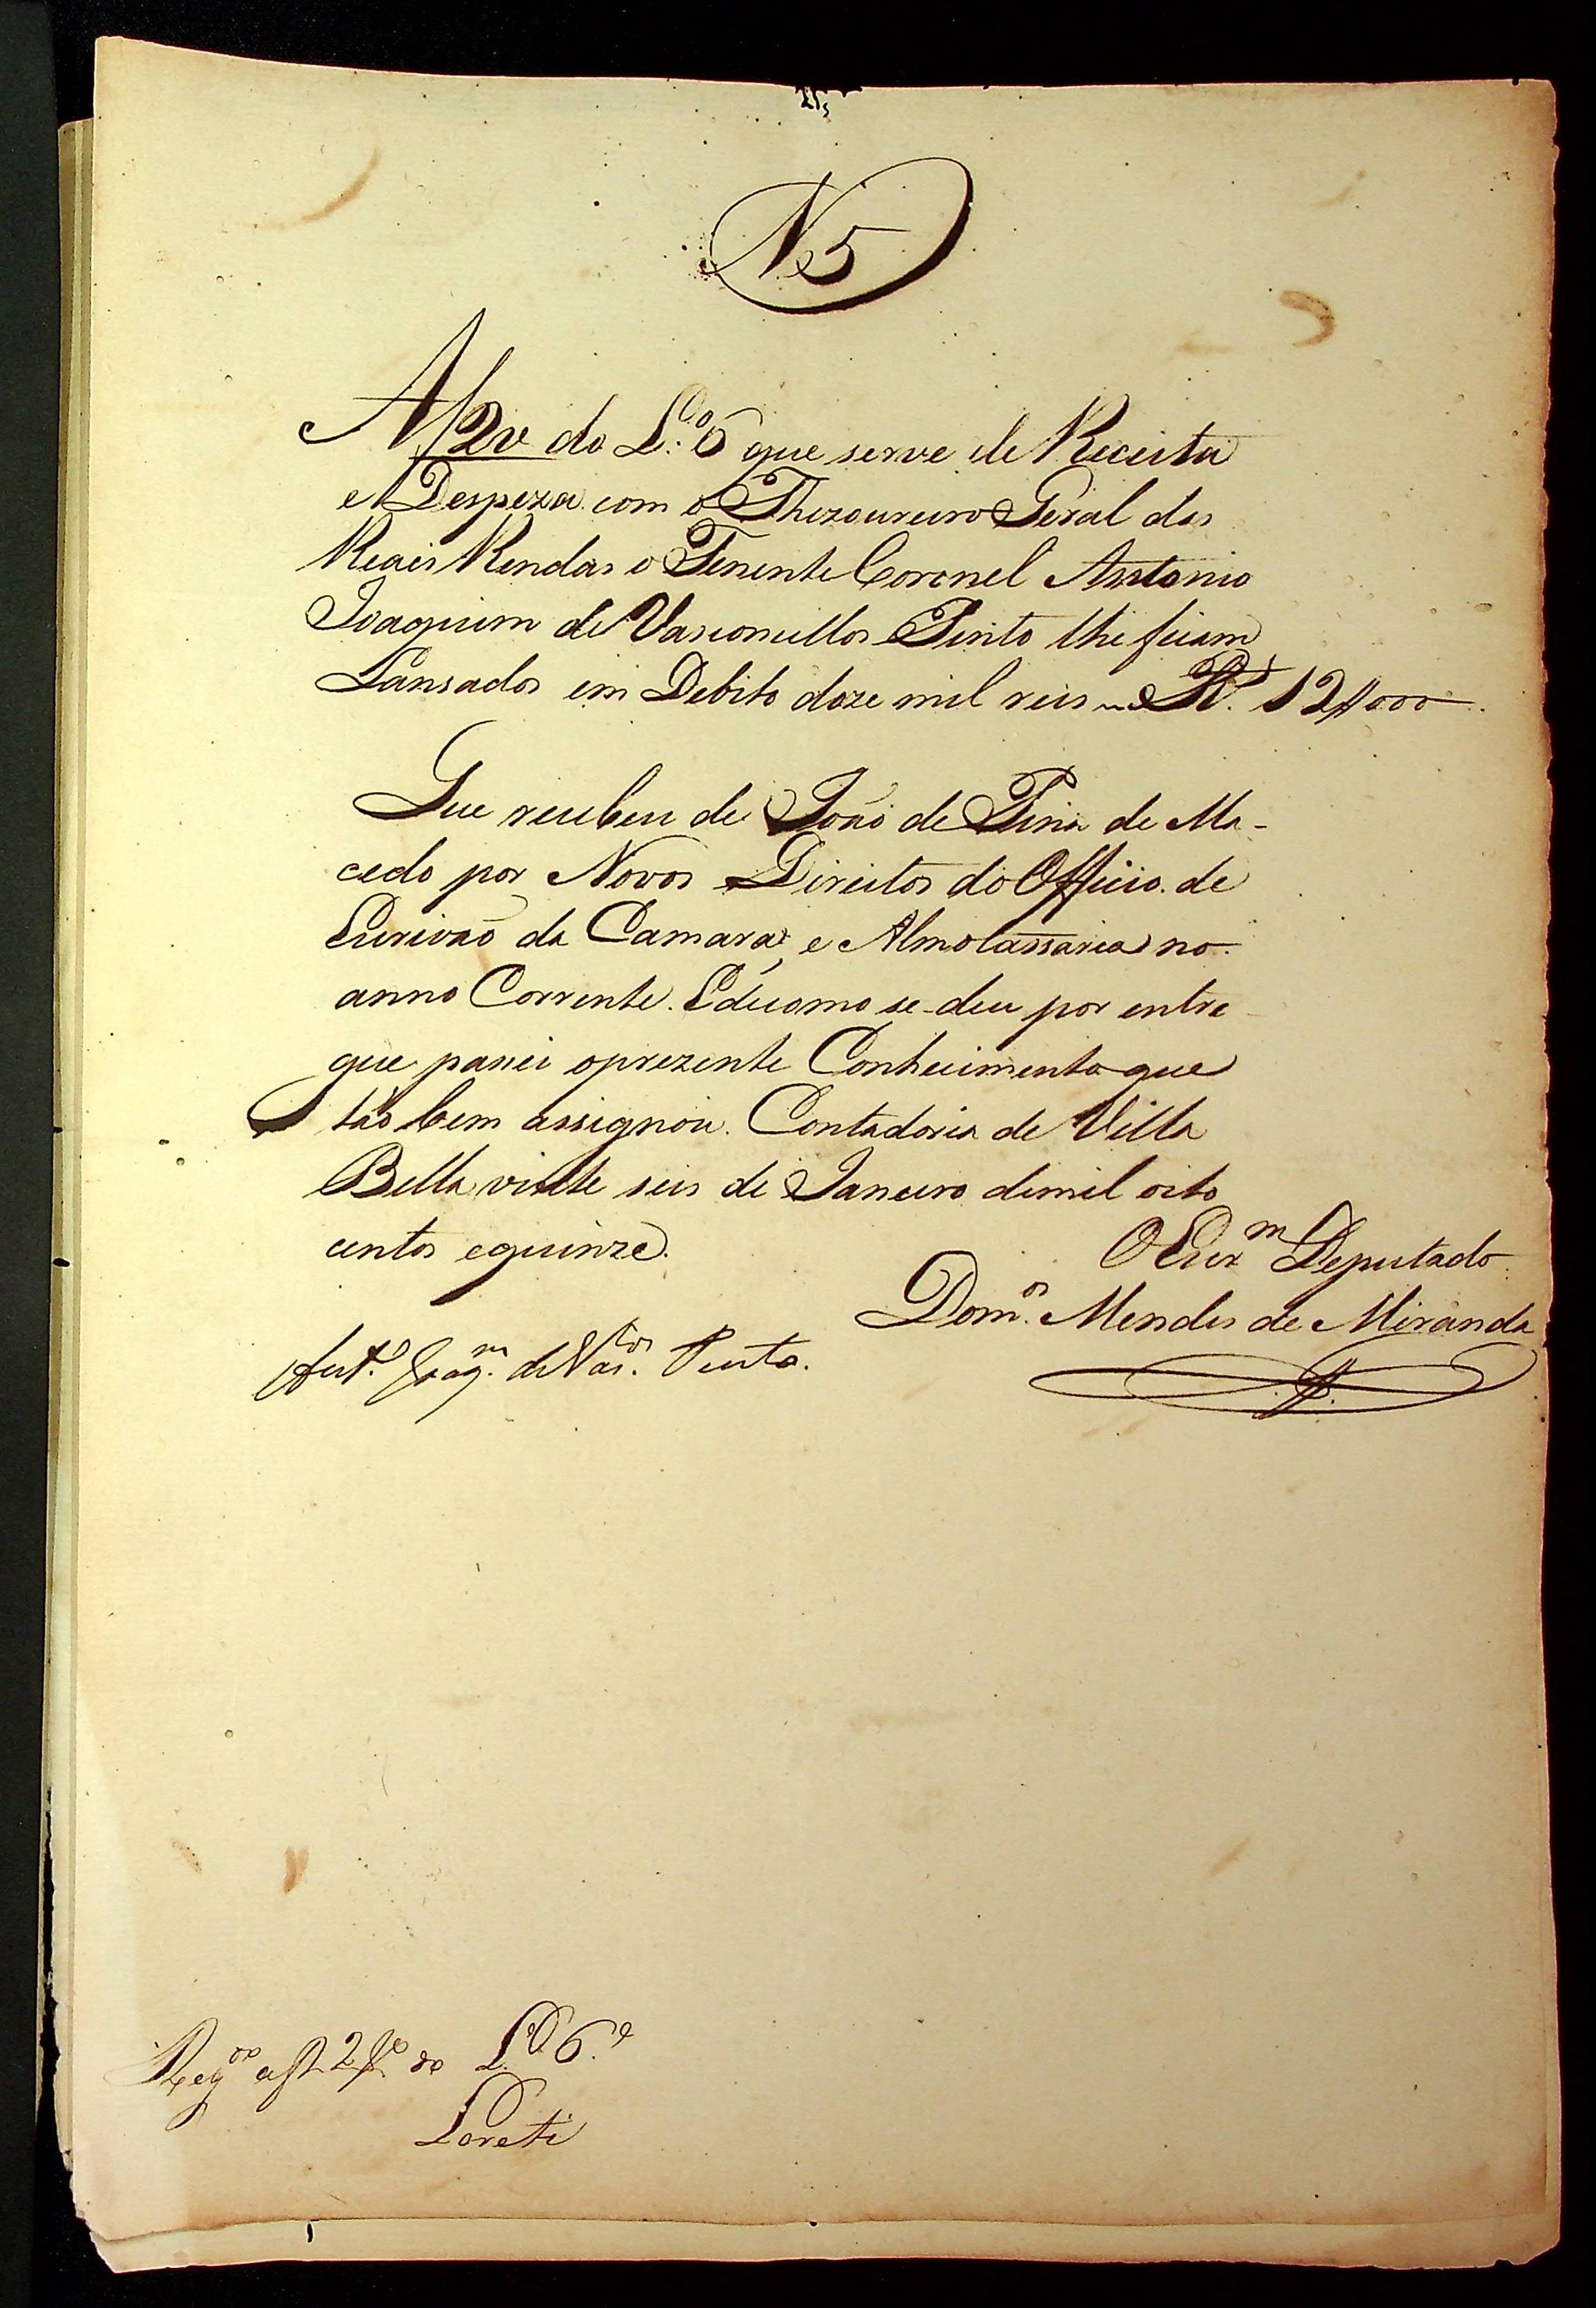 N 5
A f 2 v do L.º 6 que serve de Receita
e Despeza com o Thezoureiro Geral das
Reais Rendas o Tenente Coronel Antonio
Joaquim de Vasconcellos Pinto lhe ficam
Lansados em Debito doze mil reis R.s 12$000
Que recebeu de João de Pina de Ma-
cedo por Novos Direitos do Officio de
Escrivaõ da Camara, e Almotassaria no
anno Corrente. E de como se deu por entre
gue passei o prezente Conhecimento que
taõ bem assignou. Contadoria de Villa
Bella vinte seis de Janeiro de mil oito
centos e quinze.
O Escr.m Deputado
Dom.os Mendes de Miranda
Ant.º Joaq.m de Vas.los Pinto.
Reg.do a f 2 do L.º 6.º
Loreti